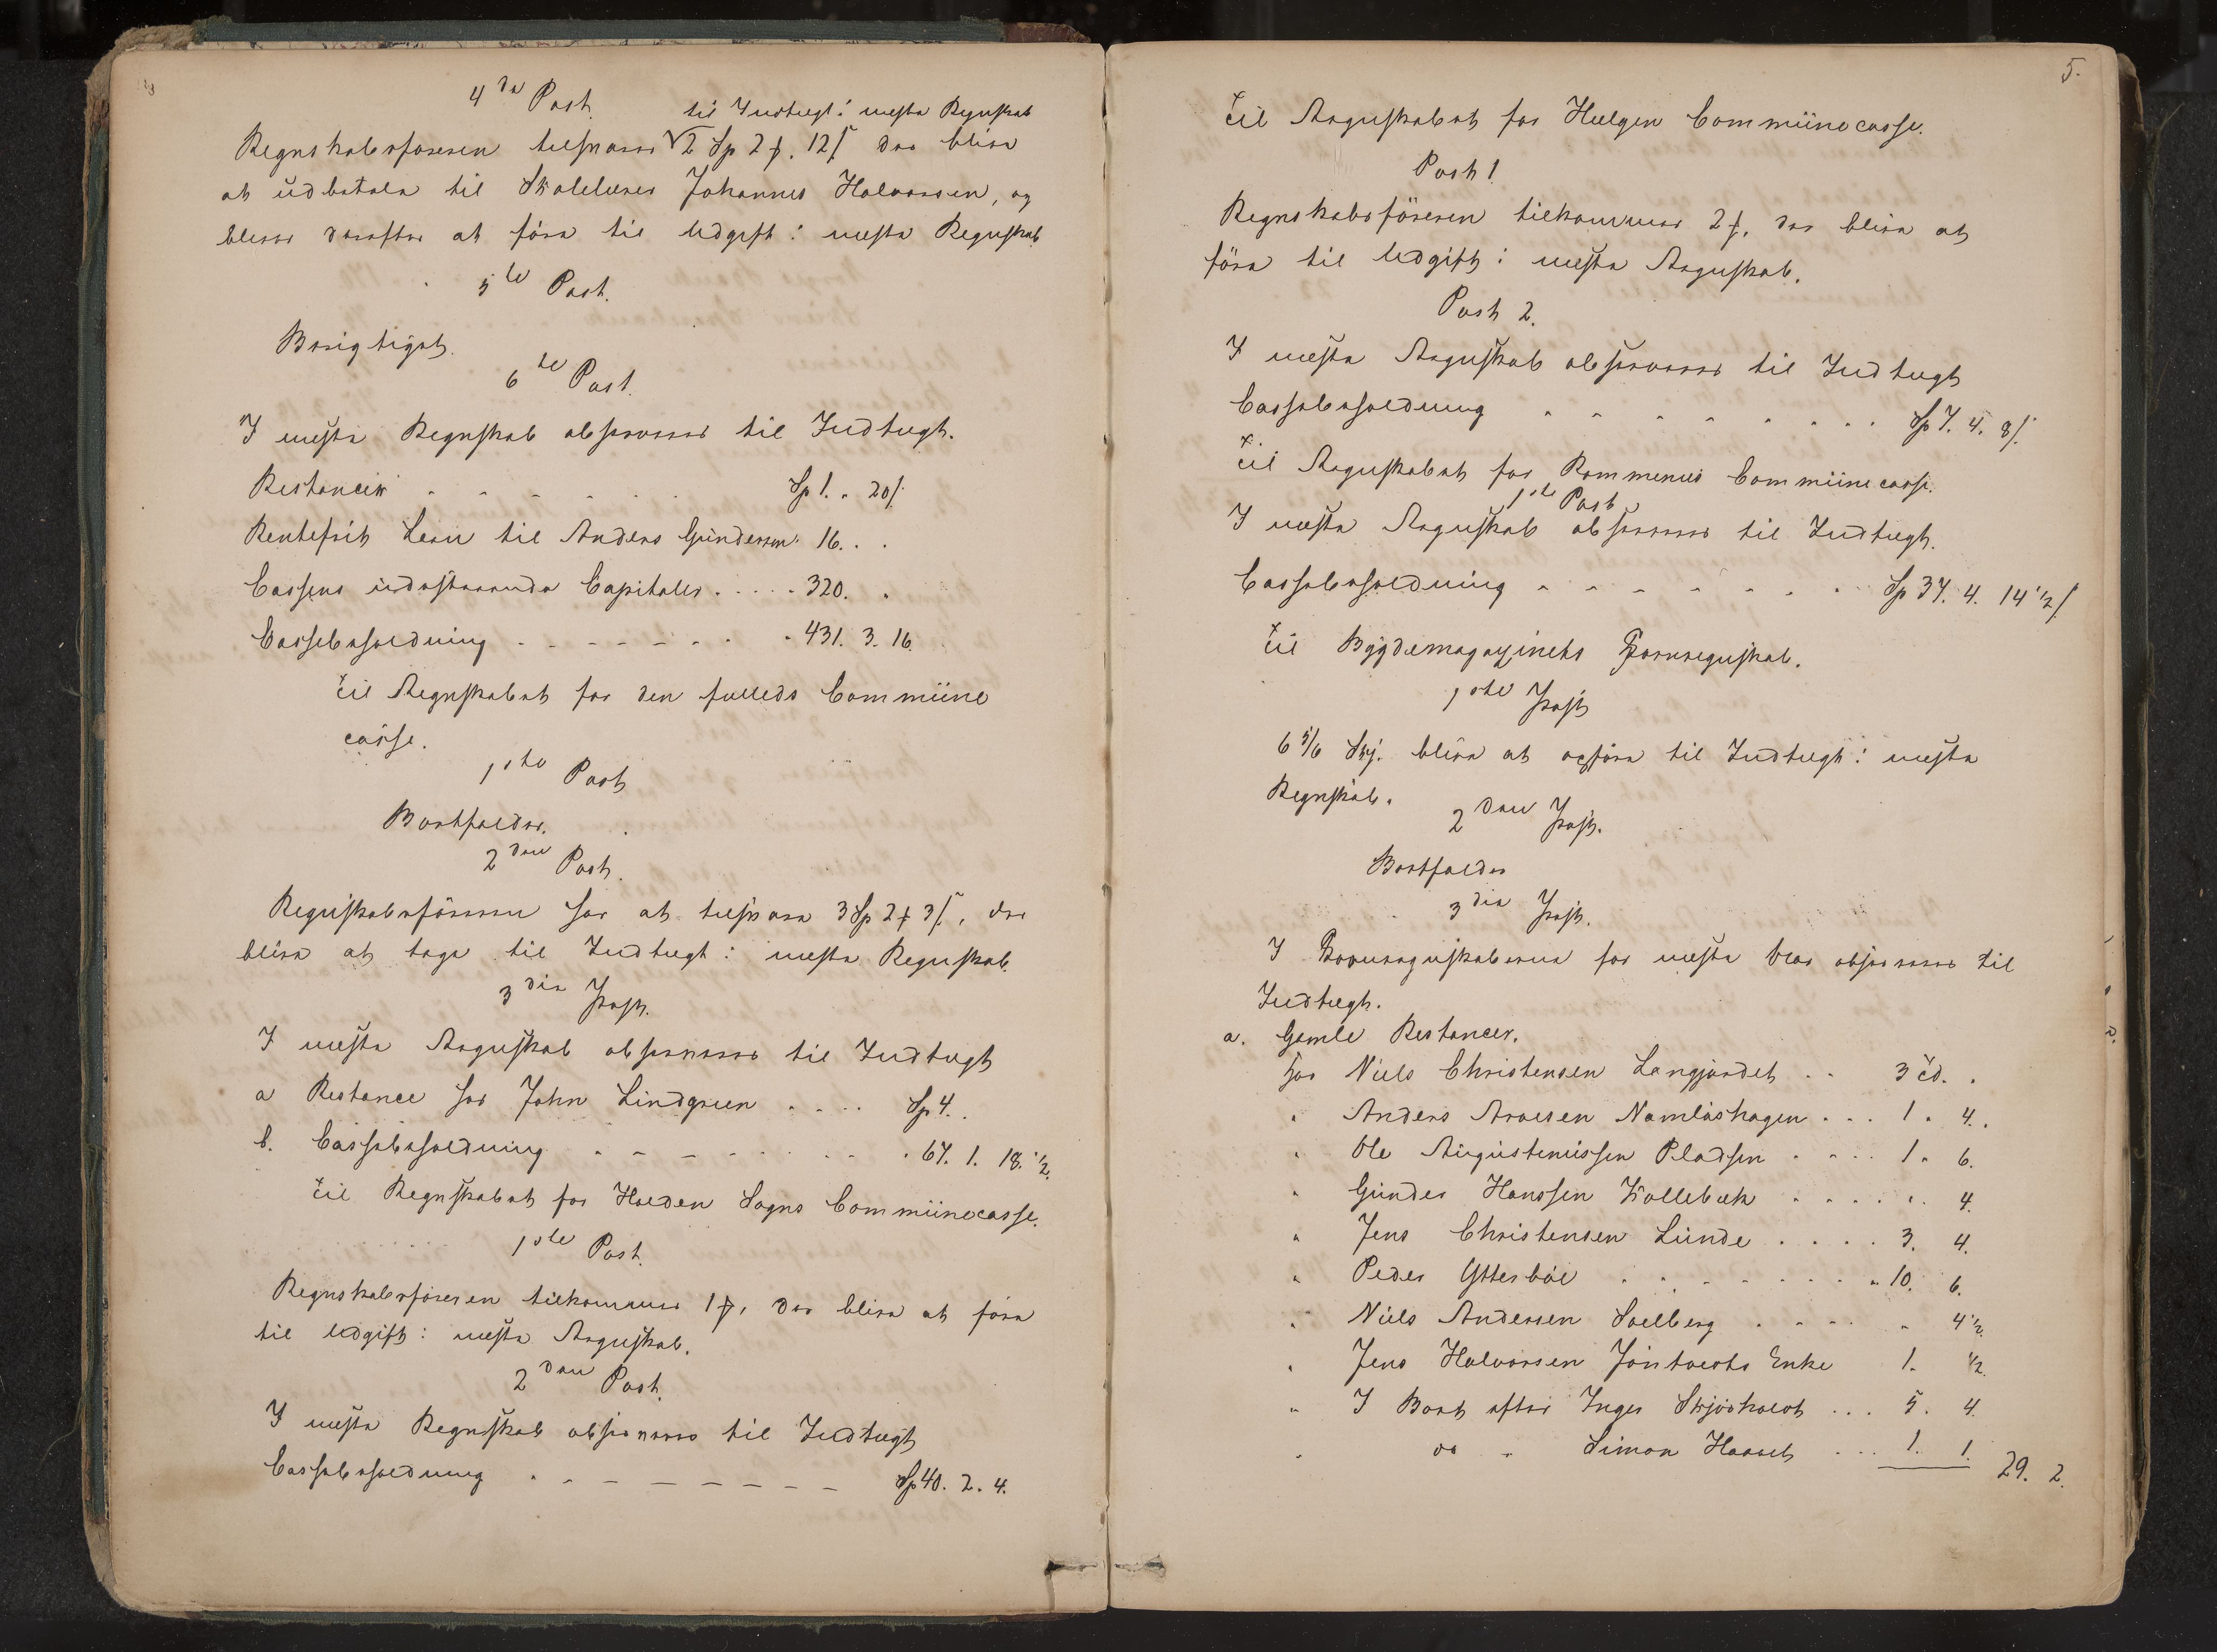 4de Post.
til Indtægt i næste Regnskab
Regnskabsføreren tilsvarer √2 Sp 2 ƒ. 12 ſ der blive
at udbetale til Skolelærer Johannes Halvorsen, og
bliver derefter at føre til Udgift i næste Regnskab
5te Post.
Berigtiget.
6te Post.
I næste Regnskab ansvares til Indtægt.
Restancer . . . . . . Sp 1. " 20 ſ.
Rentefrit Laan til Anders Gundersen 16. . .
Cassens udestaaende Capitaler . . . . . 320. .
Cassebeholdning . - - - - - . . 431. 3. 16.
Til Regnskabet for den fælleds Commüne
casse.
1ste Post
Bortfalder.
2den Post.
Regnskabsføreren har at tilsvare 3 Sp 2 ƒ 3 ſ., der
blive at tage til Indtægt i næste Regnskab.
3die Post.
I næste Regnskab ansvares til Indtægt
a Restance hos John Lindgreen . . . . Sp 4. .
b. Cassebeholdning . - - - . . . . 67. 1. 18. 1/2.
Til Regnskabet for Holden Sogns Commünecasse.
1ste Post.
Regnskabsføreren tilkommer 1 ƒ, der blive at føre
til Udgift i næste Regnskab.
2den Post.
I næste Regnskab ansvares til Indtægt
Cassebeholdning . - - - - - - - Sp 40. 2. 4.
5.
Til Regnskabet for Helgen Commünecasse.
Post 1.
Regnskabsføreren tilkommer 2 ƒ, der blive at
føre til Udgift i næste Regnskab.
Post 2.
I næste Regnskab ansvares til Indtægt
Cassebeholdning . . . . . . . . . Sp 7. 4. 8 ſ.
Til Regnskabet for Rommenes Commünecasse.
1ste Post
I næste Regnskab ansvares til Indtægt.
Cassebeholdning . . . . . . . . Sp 37. 4. 14 1/2 ſ.
Til Bÿgdemagazinets Kornregnskab.
1ste Post
6 5/6 Skj. blive at opføre til Indtægt i næste
Regnskab.
2den Post.
Bortfalder
3die Post.
I Kornregnskaberne for næste Aar ansvares til
Indtægt.
a. Gamle Restancer.
hos Niels Christensen Langjordet . . 3 td. .
" Anders Aroesen Namløshagen . . . 1. 4. .
" Ole Augustinussen Pladsen . . . . 1. 6.
" Gunder Hanssen Kollebæk . . . . . . 4.
" Jens Christensen Lunde . . . . 3. 4.
" Peder Ytterbøe . . . . . . . . 10. 6.
" Niels Andersen Soelberg . . . . . 4 1/2.
" Jens Halvorsen Jøntvedts Enke 1. 1/2.
" I Boet efter Inger Skjørholdt . . . 5. 4.
" do " Simon Haaset . . . 1. 1. 29. 2.